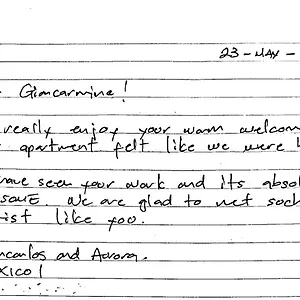 23-MAY-
Giancarmine!
really enjoy your warm welcom
apartment felt like we were
ave seen your work and its absol
some. We are glad to met such
ist like you.
ncarlos and Aurora.
xico!